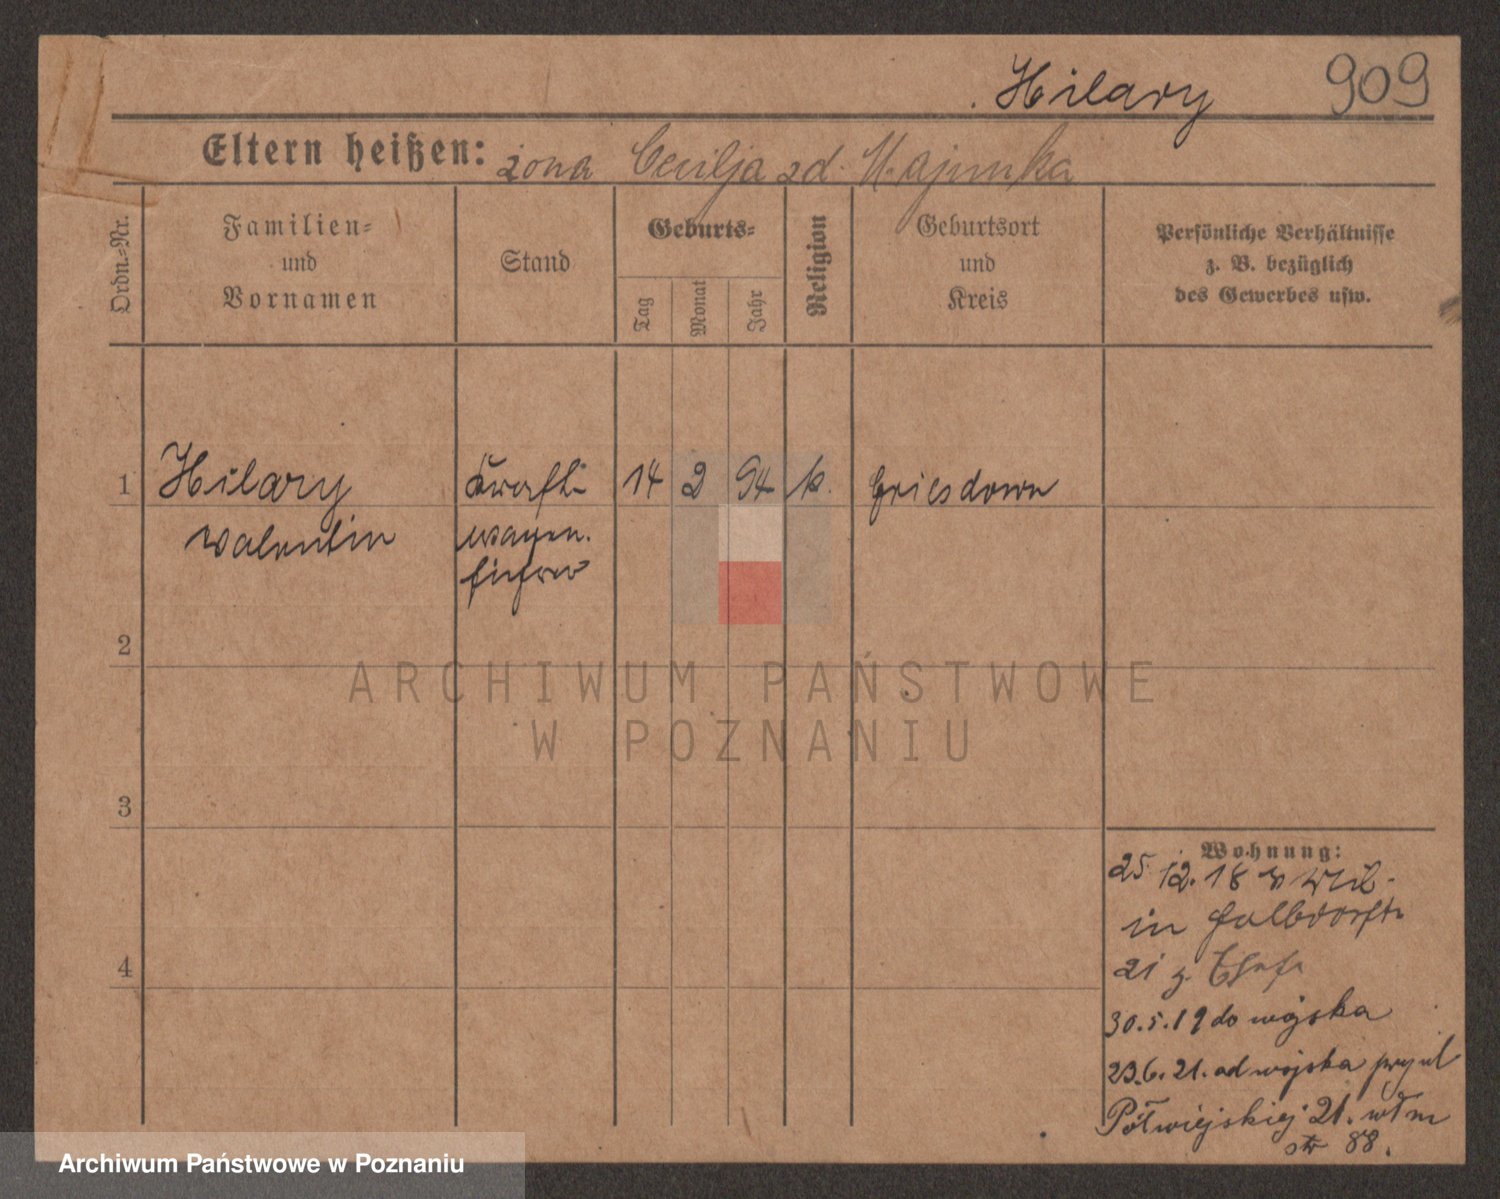 Hilary 909
Eltern heißen: żona Cecilja zd. Majunka
Ordn.-Nr.
Familien- und Vornamen
Stand
Geburts-
Tag
Monat
Jahr
Religion
Geburtsort und Kreis
Persönliche Verhältnisse
z. B. bezüglich
des Gewerbes usw.
1 Hilary Kraft- 14 2 94 k. Griesdorn
Valentin wagen.
führer
2
ARCHIWUM PAŃSTWOWE
W POZNANIU
3
Wohnung:
25. 12. 18
in Halbdorfstr
21 z.
30.5.19 do wojska
23.6.21. od wojska przy ul
Półwiejskiej 21. wł m
str 88.
4
Archiwum Państwowe w Poznaniu